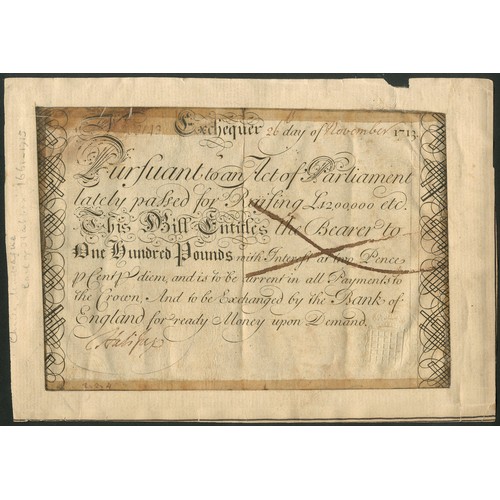 Exchequer 26 day of November 1713
Pursuant to an Act of Parliament
lately passed for Raising £1200000 etc.
This Bill Entitles the Bearer to
One Hundred Pounds with Interest at two Pence
p Cent p diem, and is to be current in all Payments to
the Crown, And to be Exchanged by the Bank of
England for ready Money upon Demand.
Halifax